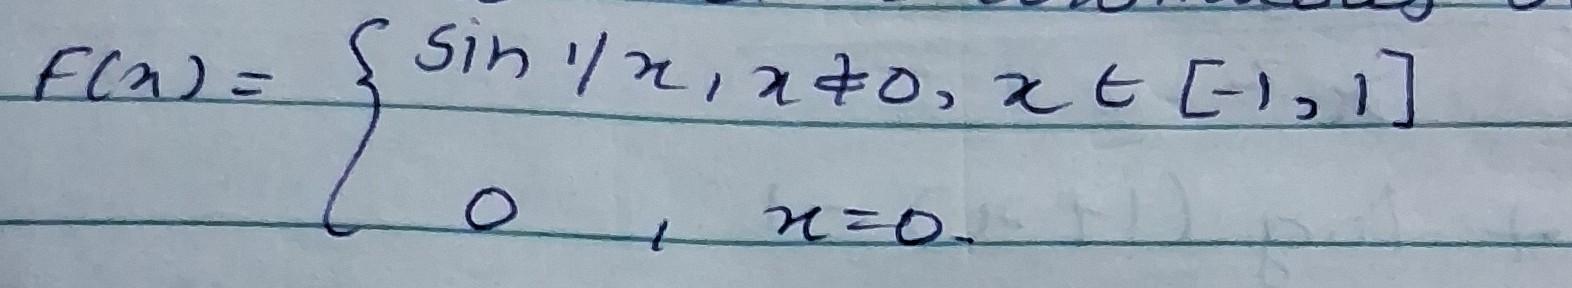 F(x) = { sin 1/x, x ≠ 0, x ∈ [-1, 1]
0 , x = 0.